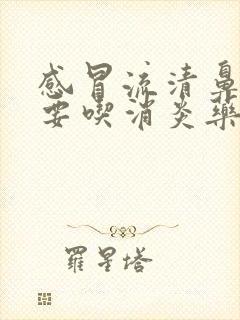 感冒流清鼻
要喫消炎藥
羅星塔